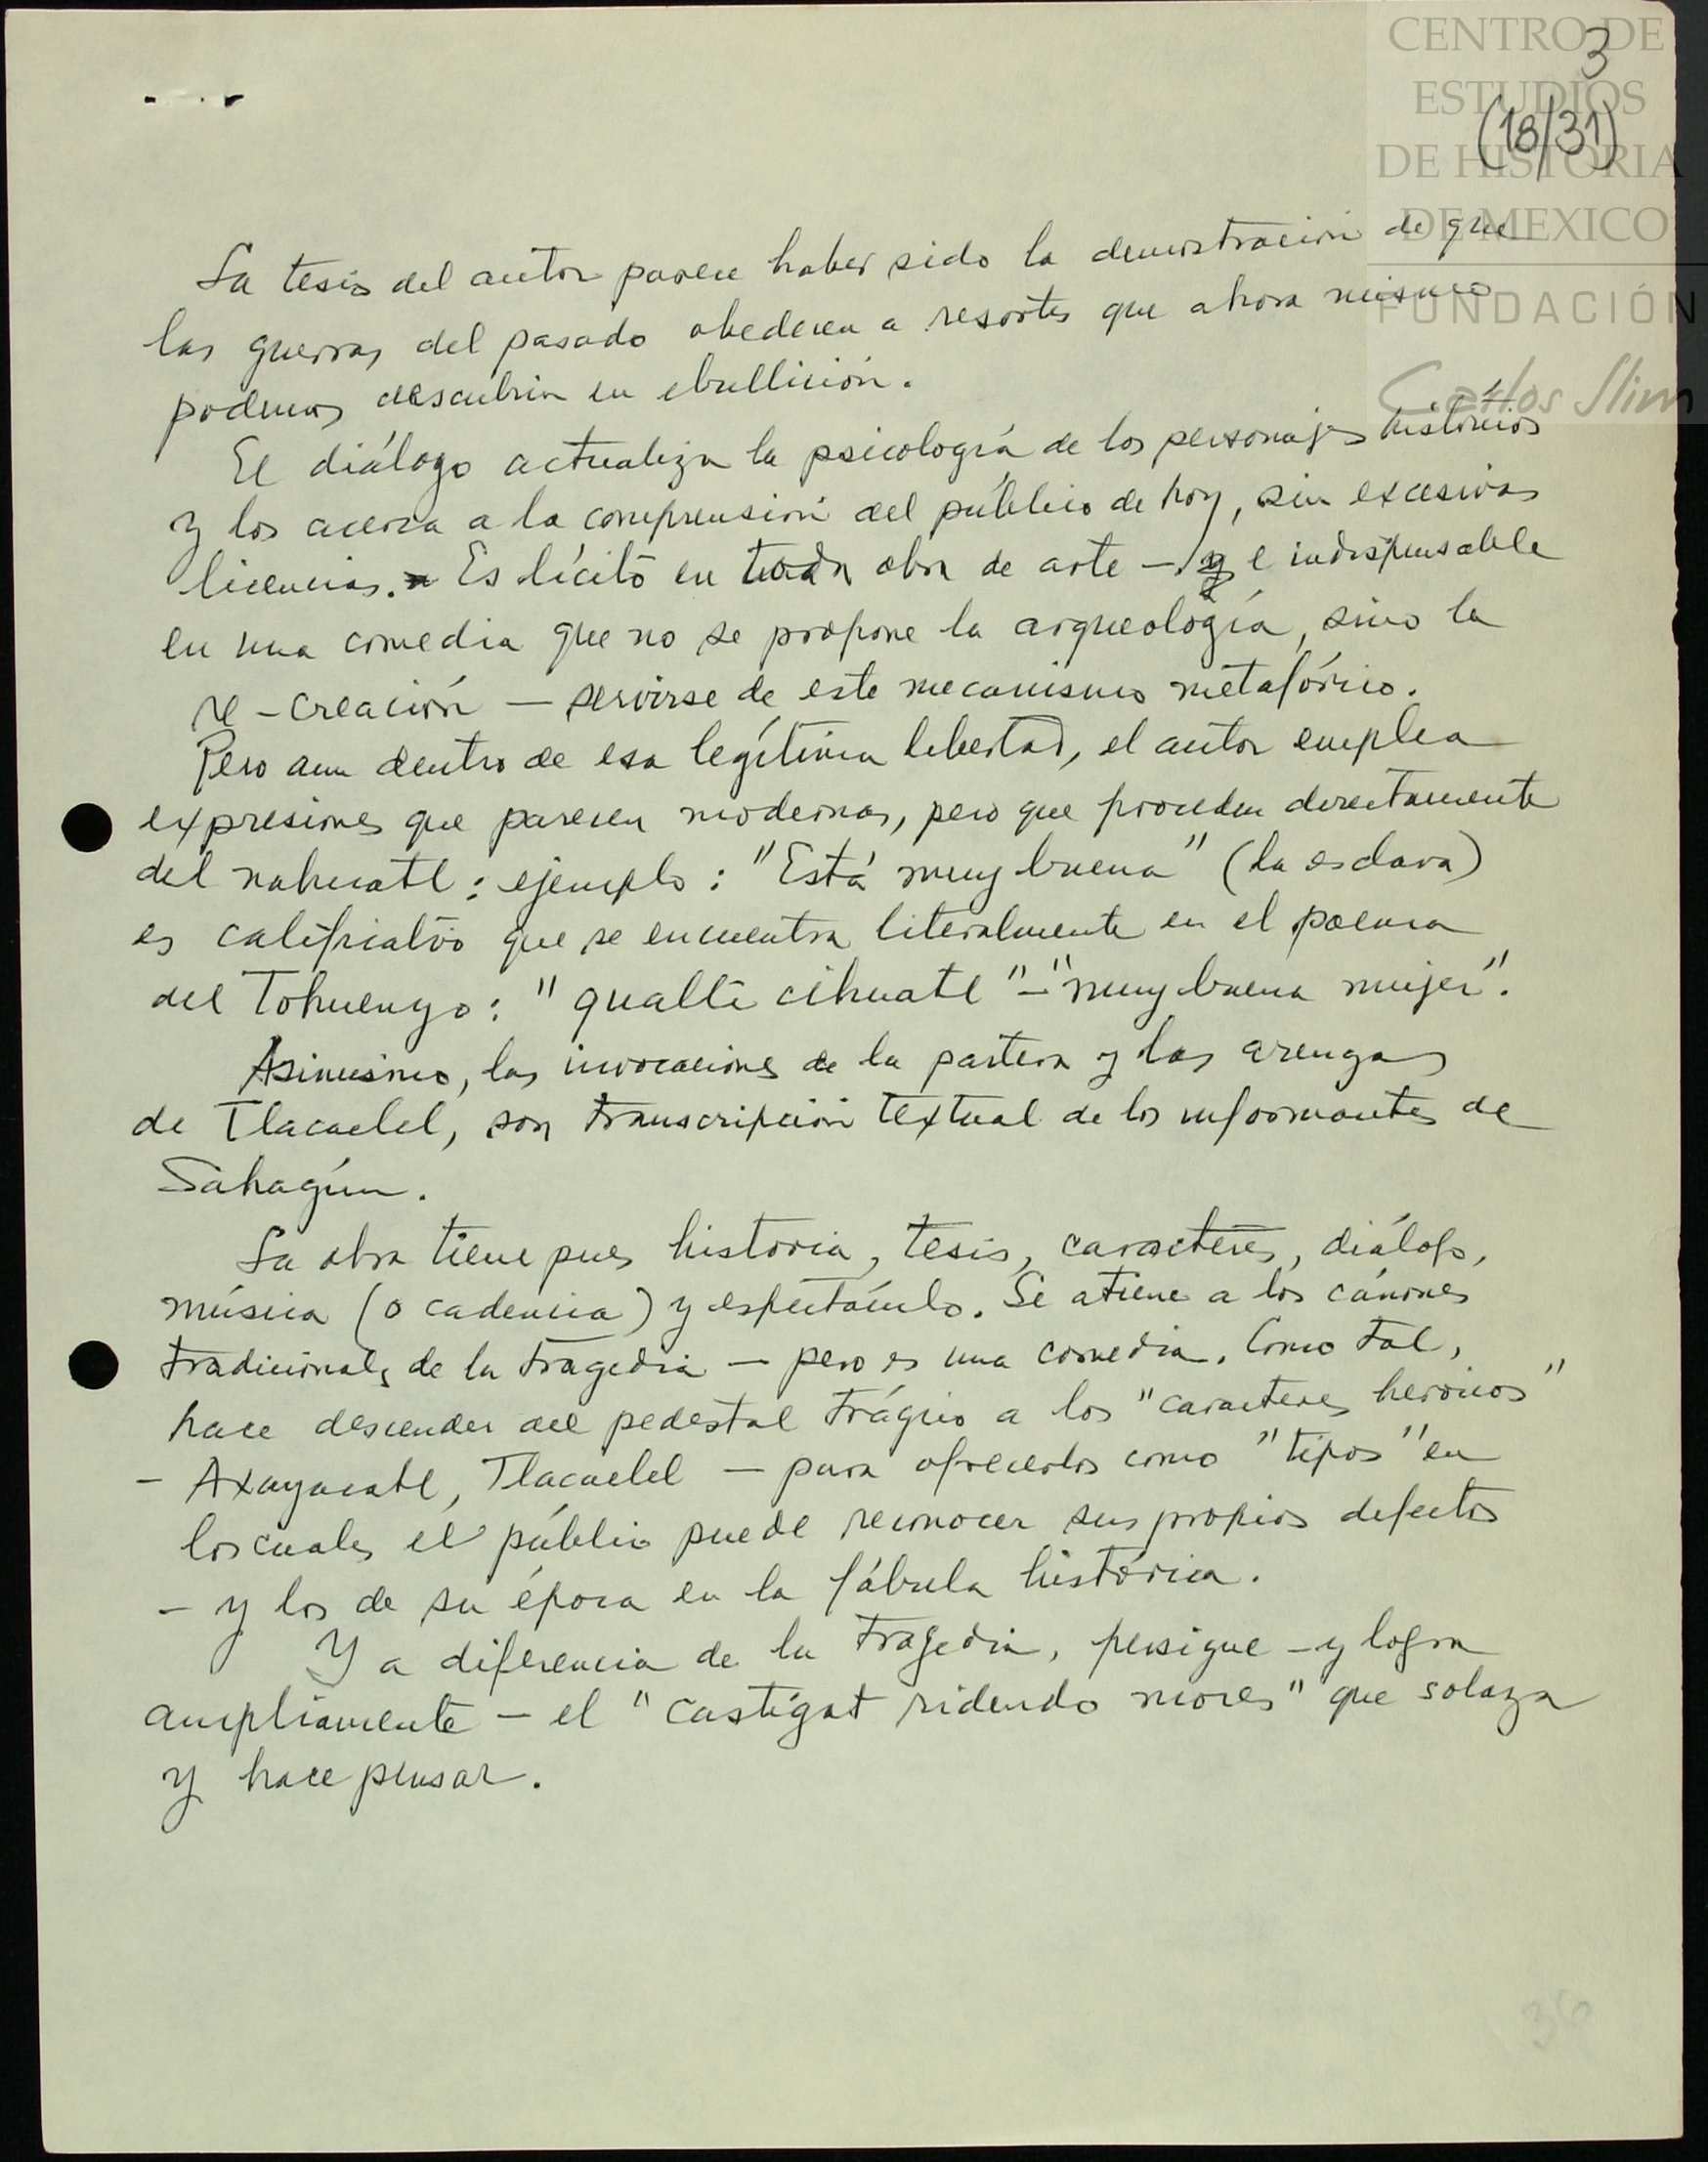 CENTRO DE
ESTUDIOS
DE HISTORIA
DE MEXICO
FUNDACIÓN
Carlos Slim
3
(18/31)
La tesis del autor parece haber sido la demostración de que
las guerras del pasado obedecen a resortes que ahora mismo
podemos descubrir en ebullición.
El diálogo actualiza la psicología de los personajes históricos
y los acerca a la comprensión del público de hoy, sin excesivas
licencias. Es lícito en toda obra de arte — e indispensable
en una comedia que no se propone la arqueología, sino la
re-creación — servirse de este mecanismo metafórico.
Pero aun dentro de esa legítima libertad, el autor emplea
expresiones que parecen modernas, pero que proceden directamente
del nahuatl: ejemplo: "Está muy buena" (la esclava)
es calificativo que se encuentra literalmente en el poema
del Tohuenyo: "qualli cihuatl" — "muy buena mujer".
Asimismo, las invocaciones de la partera y las arengas
de Tlacaelel, son transcripción textual de los informantes de
Sahagún.
La obra tiene pues historia, tesis, caracteres, diálogo,
música (o cadencia) y espectáculo. Se atiene a los cánones
tradicionales de la tragedia — pero es una comedia. Como tal,
hace descender del pedestal trágico a los "caracteres heroicos"
- Axayacatl, Tlacaelel — para ofrecerlos como "tipos" en
los cuales el público puede reconocer sus propios defectos
- y los de su época en la fábula histórica.
Y a diferencia de la tragedia, persigue - y logra
ampliamente - el "castigat ridendo mores" que solaza
y hace pensar.
36